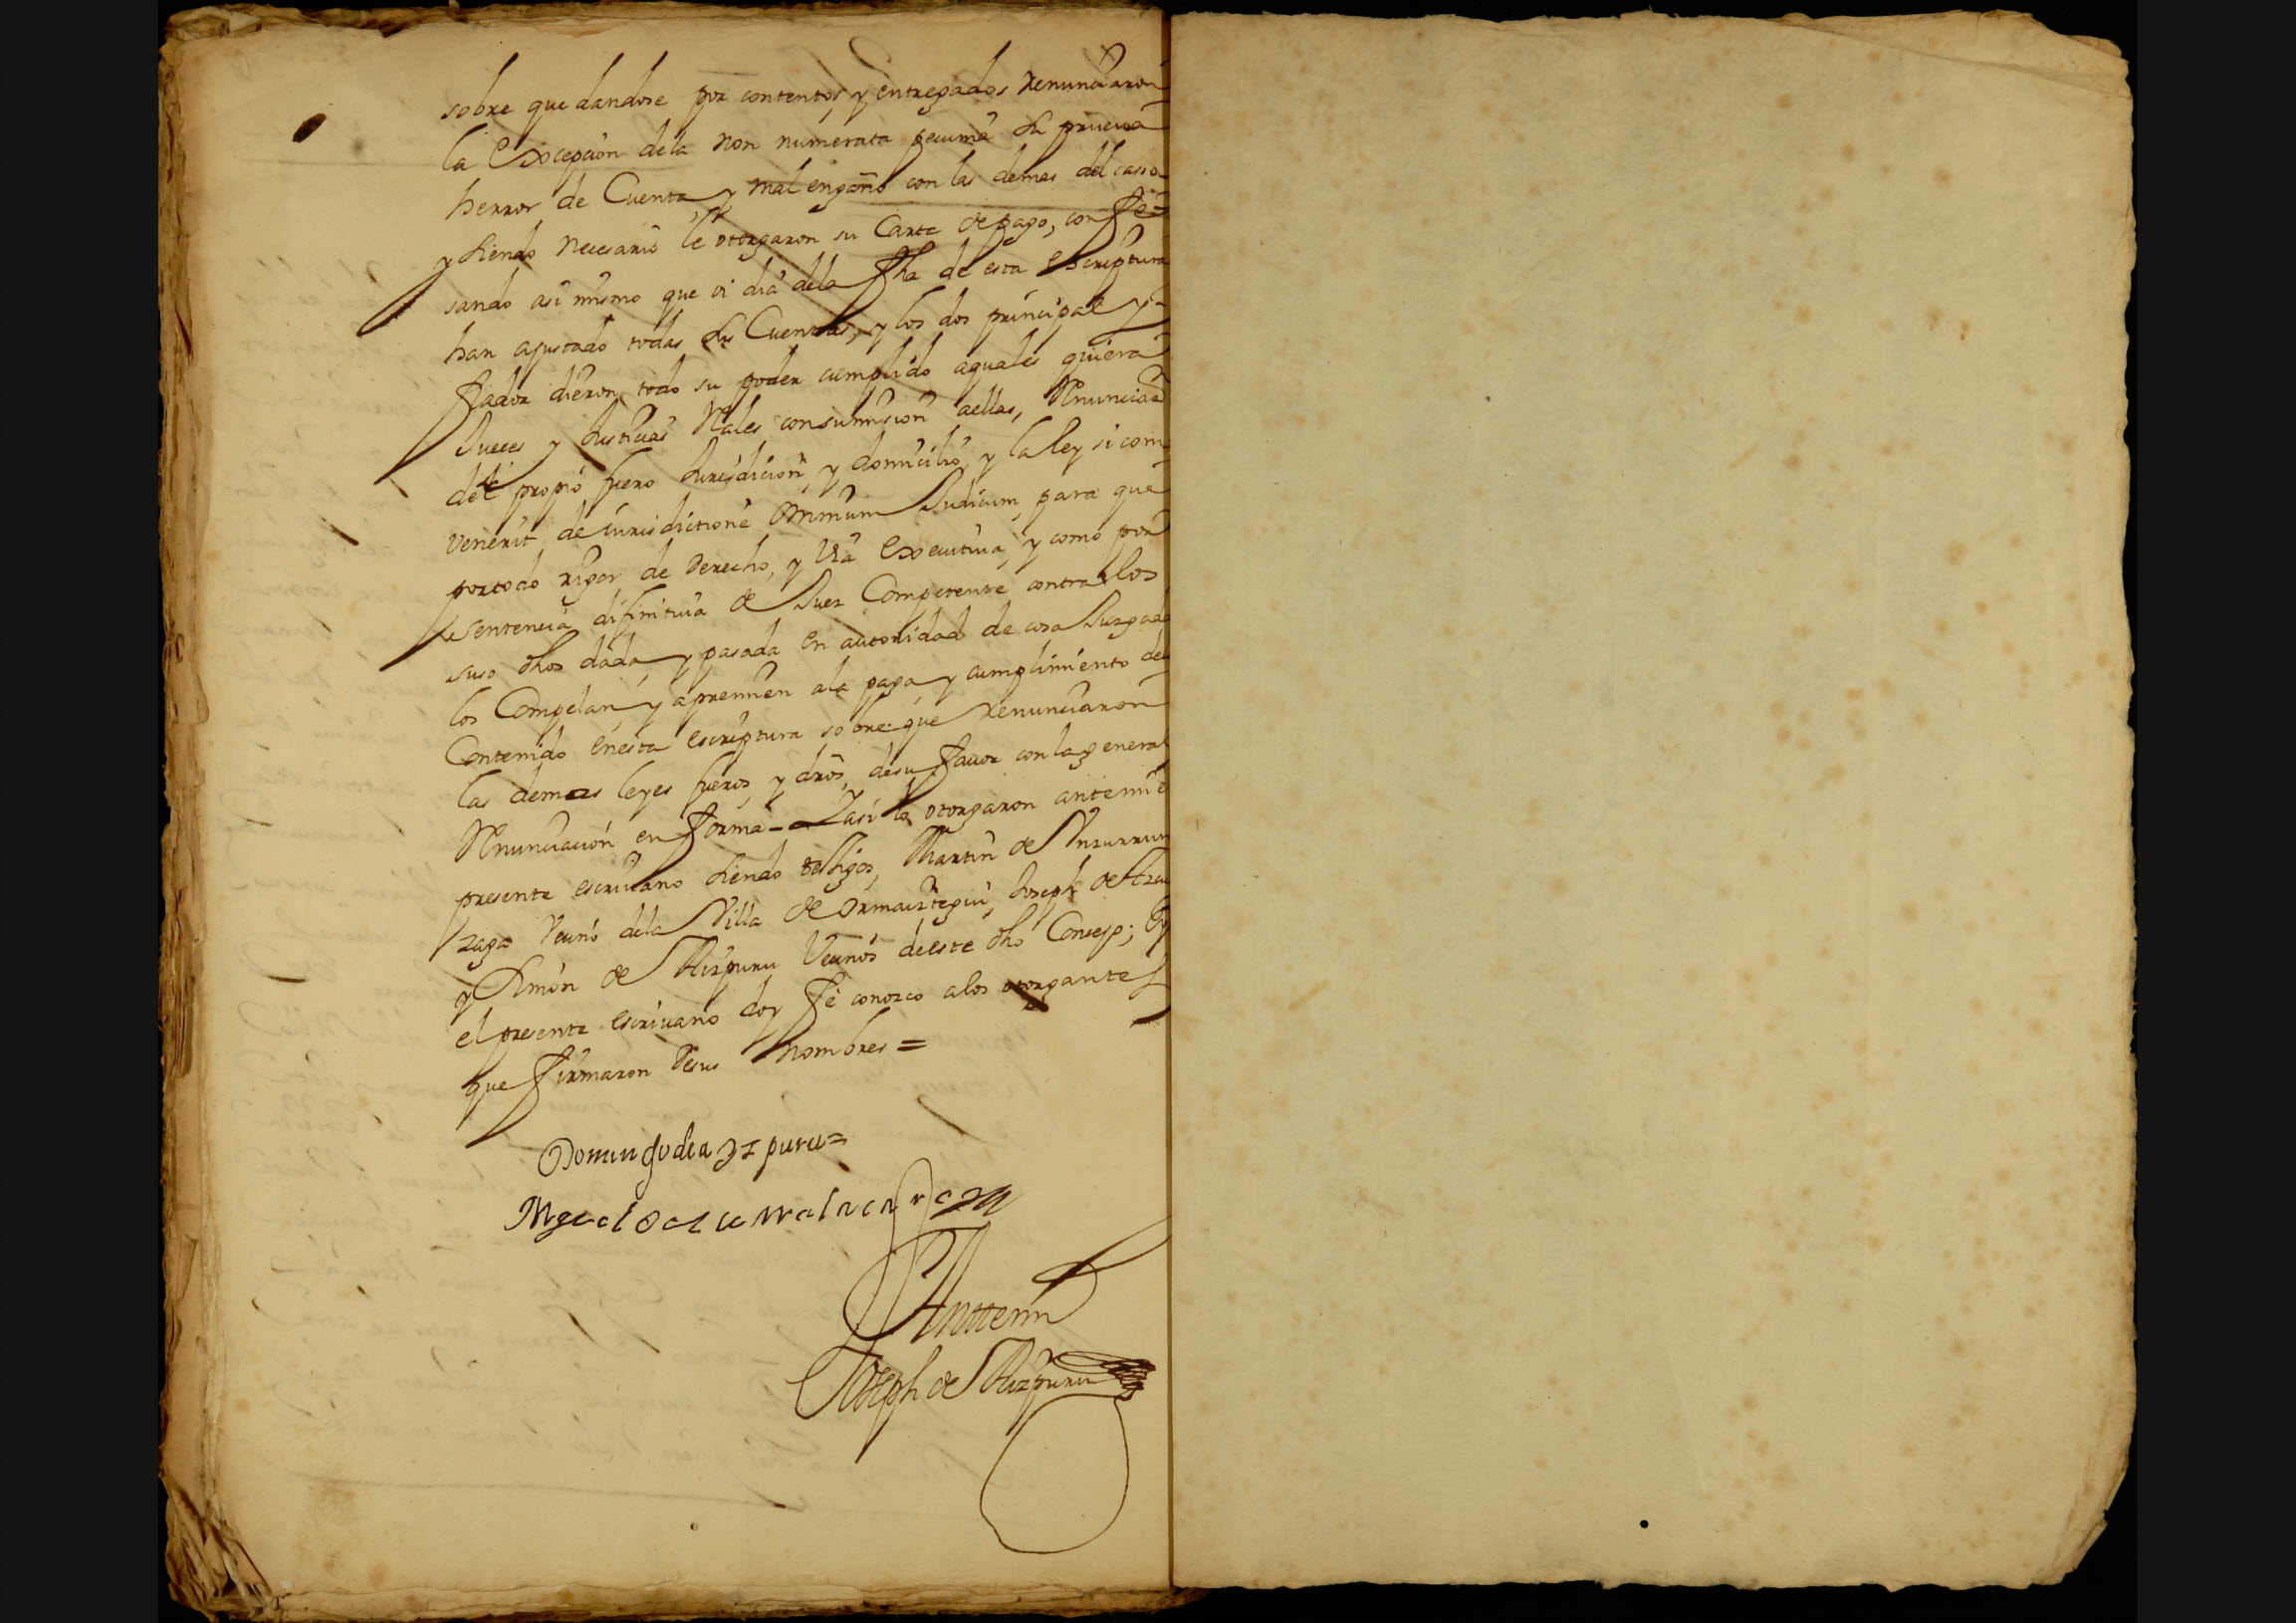 sobre que dandose por contentos, y entregados renunciaron
la Excepcion dela non numerata pecunia su prueva
herror de Cuenta y mal engaño con las demas del casso
y siendo necesario le otorgaron su Carta de pago, confe=
sando asi mismo que oi dia dela fha de esta escriptura
han ajustado todas sus Cuentas, y los dos principal y
fiador dieron todo su poder cumplido aquales quiera
Jueces y Justicias Rales consumision aellas, Renunciaron
del propio fuero Jurisdicion, y domicilio, y la ley sicom
venerit de iurisdictione omnium Judicum, para que
portodo rigor de derecho, y via executiva, y como por
sentencia difinitiva de Juez Competente contra los
suso dhos dada, y pasada en autoridad de cosa Juzgada
los Compelan y apremien ala paga y cumplimiento del
Contenido enesta escriptura sobre que renunciaron
las demas leyes fueros, y dros, desu favor con la general
Renunciacion en forma = Y asi lo otorgaron antemi el
presente escrivano siendo testigos, Martin de Insurrun
zaga vecino dela Villa de Ormaiztegui, Joseph de
y Simon de Aizpuru Vecinos deeste dho Concejo; Yo
el presente escrivano doy fe conozco alos otorgantes
que firmaron desus nombres =
Domingo de aizpuru=
Miguel de
Anttemi
Joseph de Aizpuru